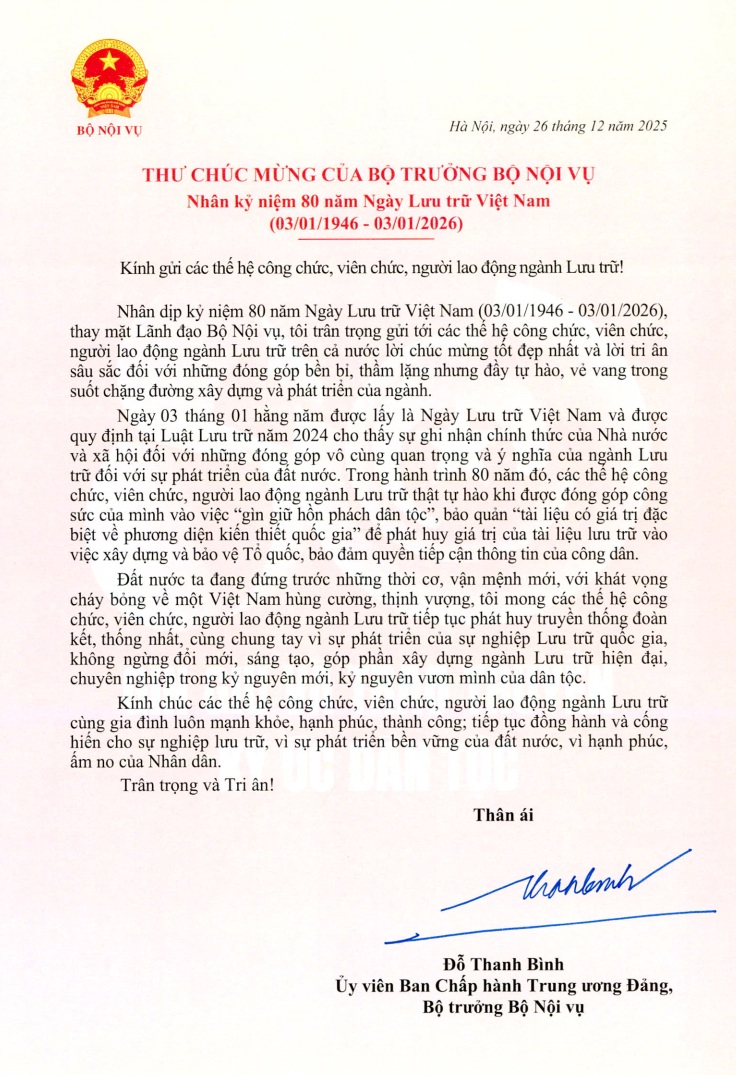 BỘ NỘI VỤ
Hà Nội, ngày 26 tháng 12 năm 2025
THƯ CHÚC MỪNG CỦA BỘ TRƯỞNG BỘ NỘI VỤ
Nhân kỷ niệm 80 năm Ngày Lưu trữ Việt Nam
(03/01/1946 - 03/01/2026)
Kính gửi các thế hệ công chức, viên chức, người lao động ngành Lưu trữ!
Nhân dịp kỷ niệm 80 năm Ngày Lưu trữ Việt Nam (03/01/1946 - 03/01/2026),
thay mặt Lãnh đạo Bộ Nội vụ, tôi trân trọng gửi tới các thế hệ công chức, viên chức,
người lao động ngành Lưu trữ trên cả nước lời chúc mừng tốt đẹp nhất và lời tri ân
sâu sắc đối với những đóng góp bền bỉ, thầm lặng nhưng đầy tự hào, vẻ vang trong
suốt chặng đường xây dựng và phát triển của ngành.
Ngày 03 tháng 01 hằng năm được lấy là Ngày Lưu trữ Việt Nam và được
quy định tại Luật Lưu trữ năm 2024 cho thấy sự ghi nhận chính thức của Nhà nước
và xã hội đối với những đóng góp vô cùng quan trọng và ý nghĩa của ngành Lưu
trữ đối với sự phát triển của đất nước. Trong hành trình 80 năm đó, các thế hệ công
chức, viên chức, người lao động ngành Lưu trữ thật tự hào khi được đóng góp công
sức của mình vào việc “gìn giữ hồn phách dân tộc”, bảo quản “tài liệu có giá trị đặc
biệt về phương diện kiến thiết quốc gia” để phát huy giá trị của tài liệu lưu trữ vào
việc xây dựng và bảo vệ Tổ quốc, bảo đảm quyền tiếp cận thông tin của công dân.
Đất nước ta đang đứng trước những thời cơ, vận mệnh mới, với khát vọng
cháy bỏng về một Việt Nam hùng cường, thịnh vượng, tôi mong các thế hệ công
chức, viên chức, người lao động ngành Lưu trữ tiếp tục phát huy truyền thống đoàn
kết, thống nhất, cùng chung tay vì sự phát triển của sự nghiệp Lưu trữ quốc gia,
không ngừng đổi mới, sáng tạo, góp phần xây dựng ngành Lưu trữ hiện đại,
chuyên nghiệp trong kỷ nguyên mới, kỷ nguyên vươn mình của dân tộc.
Kính chúc các thế hệ công chức, viên chức, người lao động ngành Lưu trữ
cùng gia đình luôn mạnh khỏe, hạnh phúc, thành công; tiếp tục đồng hành và cống
hiến cho sự nghiệp lưu trữ, vì sự phát triển bền vững của đất nước, vì hạnh phúc,
ấm no của Nhân dân.
Trân trọng và Tri ân!
Thân ái
Đỗ Thanh Bình
Ủy viên Ban Chấp hành Trung ương Đảng,
Bộ trưởng Bộ Nội vụ